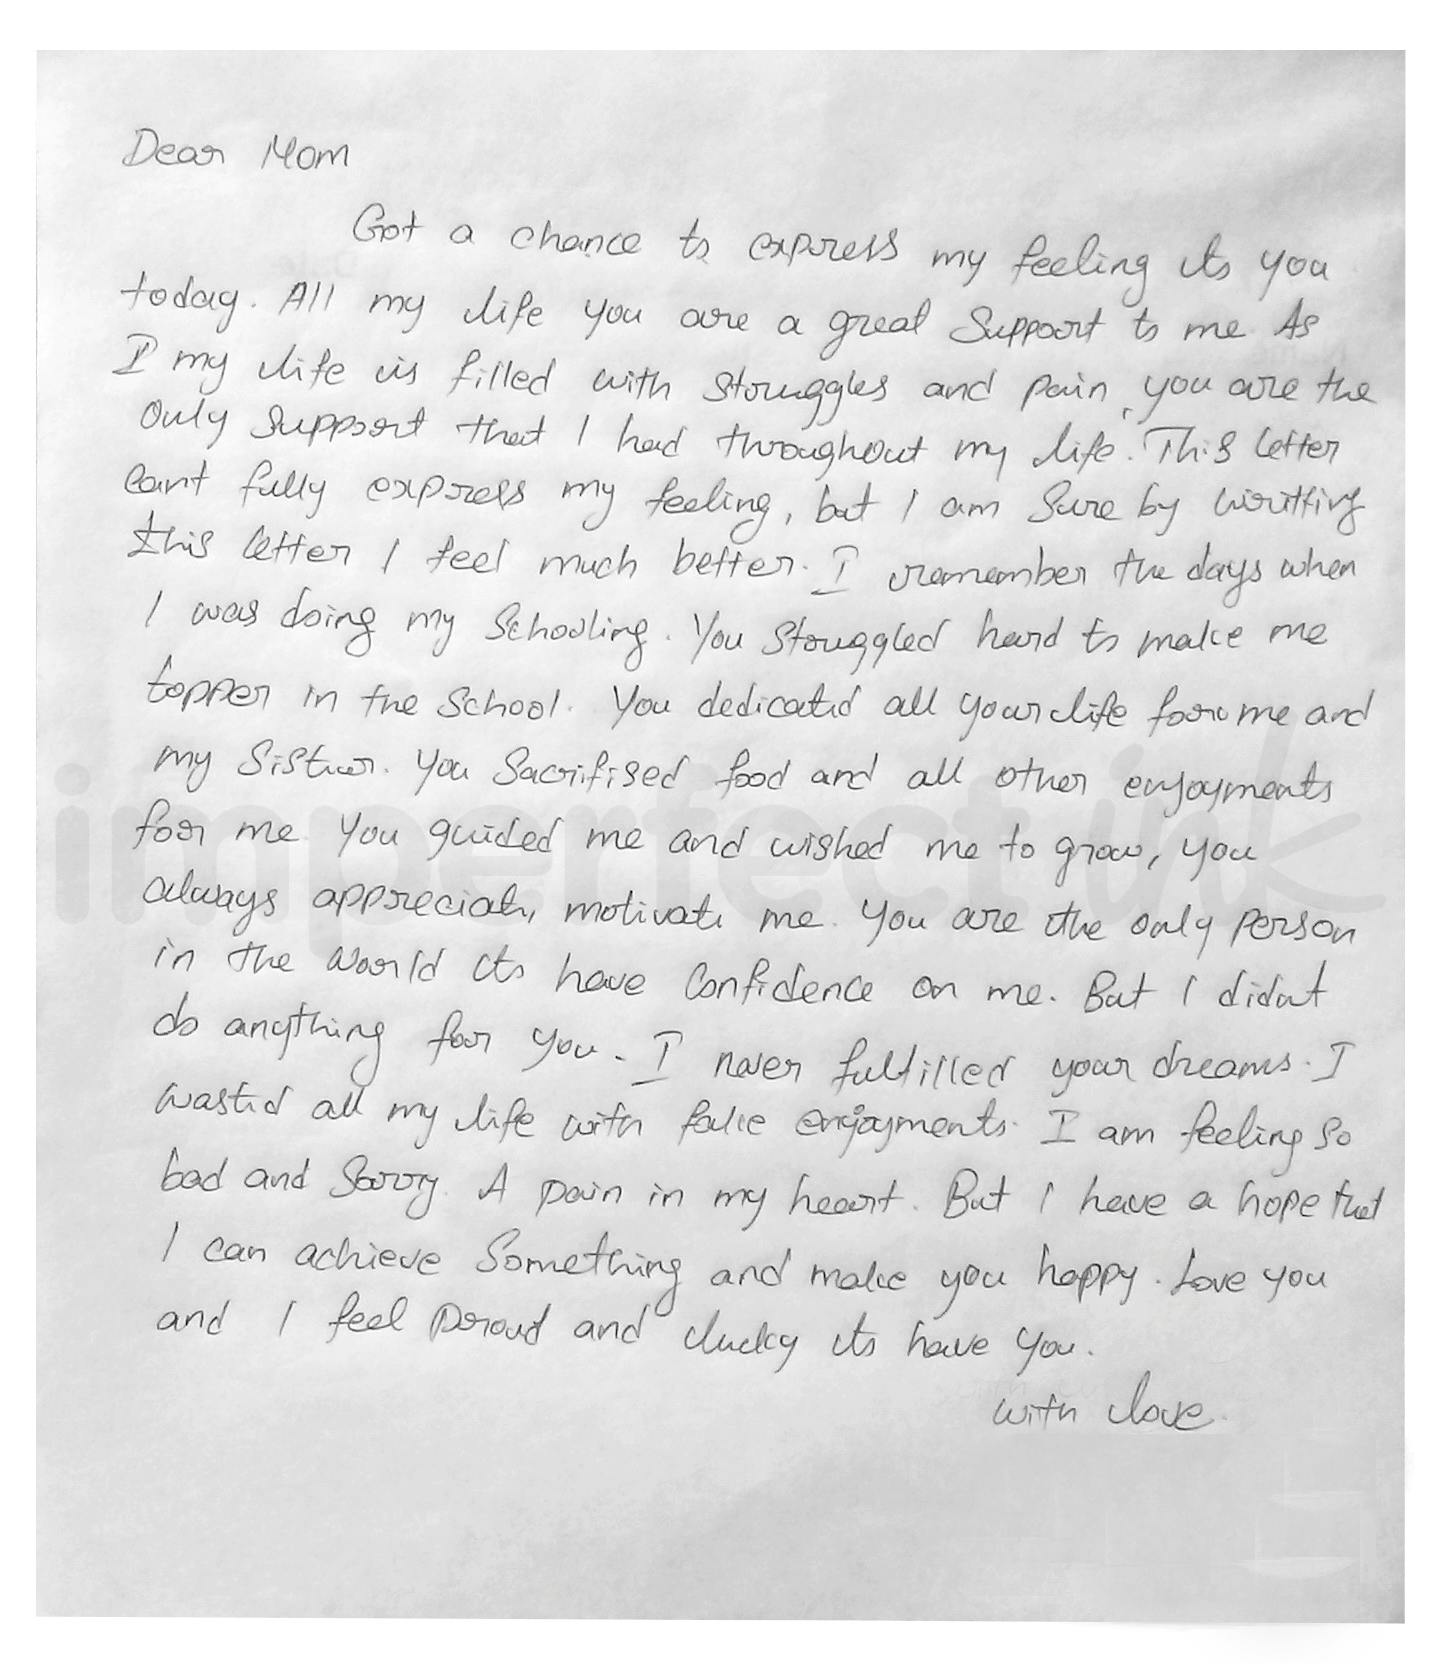 Dear Mom
Got a chance to express my feeling to you
today. All my life you are a great Support to me As
I my life is filled with struggles and pain, you are the
Only Support that I had throughout my life. This letter
cant fully express my feeling, but I am Sure by writting
this letter I feel much better. I remember the days when
I was doing my Schooling. You Struggled hard to make me
topper in the School. You dedicated all your life for me and
my Sister. You Sacrifised food and all other enjoyments
for me You guided me and wished me to grow, you
always appreciate, motivate me. You are the only person
in the world to have Confidence on me. But I didnt
do anything for you. I never fulfilled your dreams. I
wasted all my life with fake enjoyments. I am feeling So
bad and Sorry. A pain in my heart. But I have a hope that
I can achieve Something and make you happy. Love you
and I feel Proud and lucky to have You.
with love.
imperfect ink